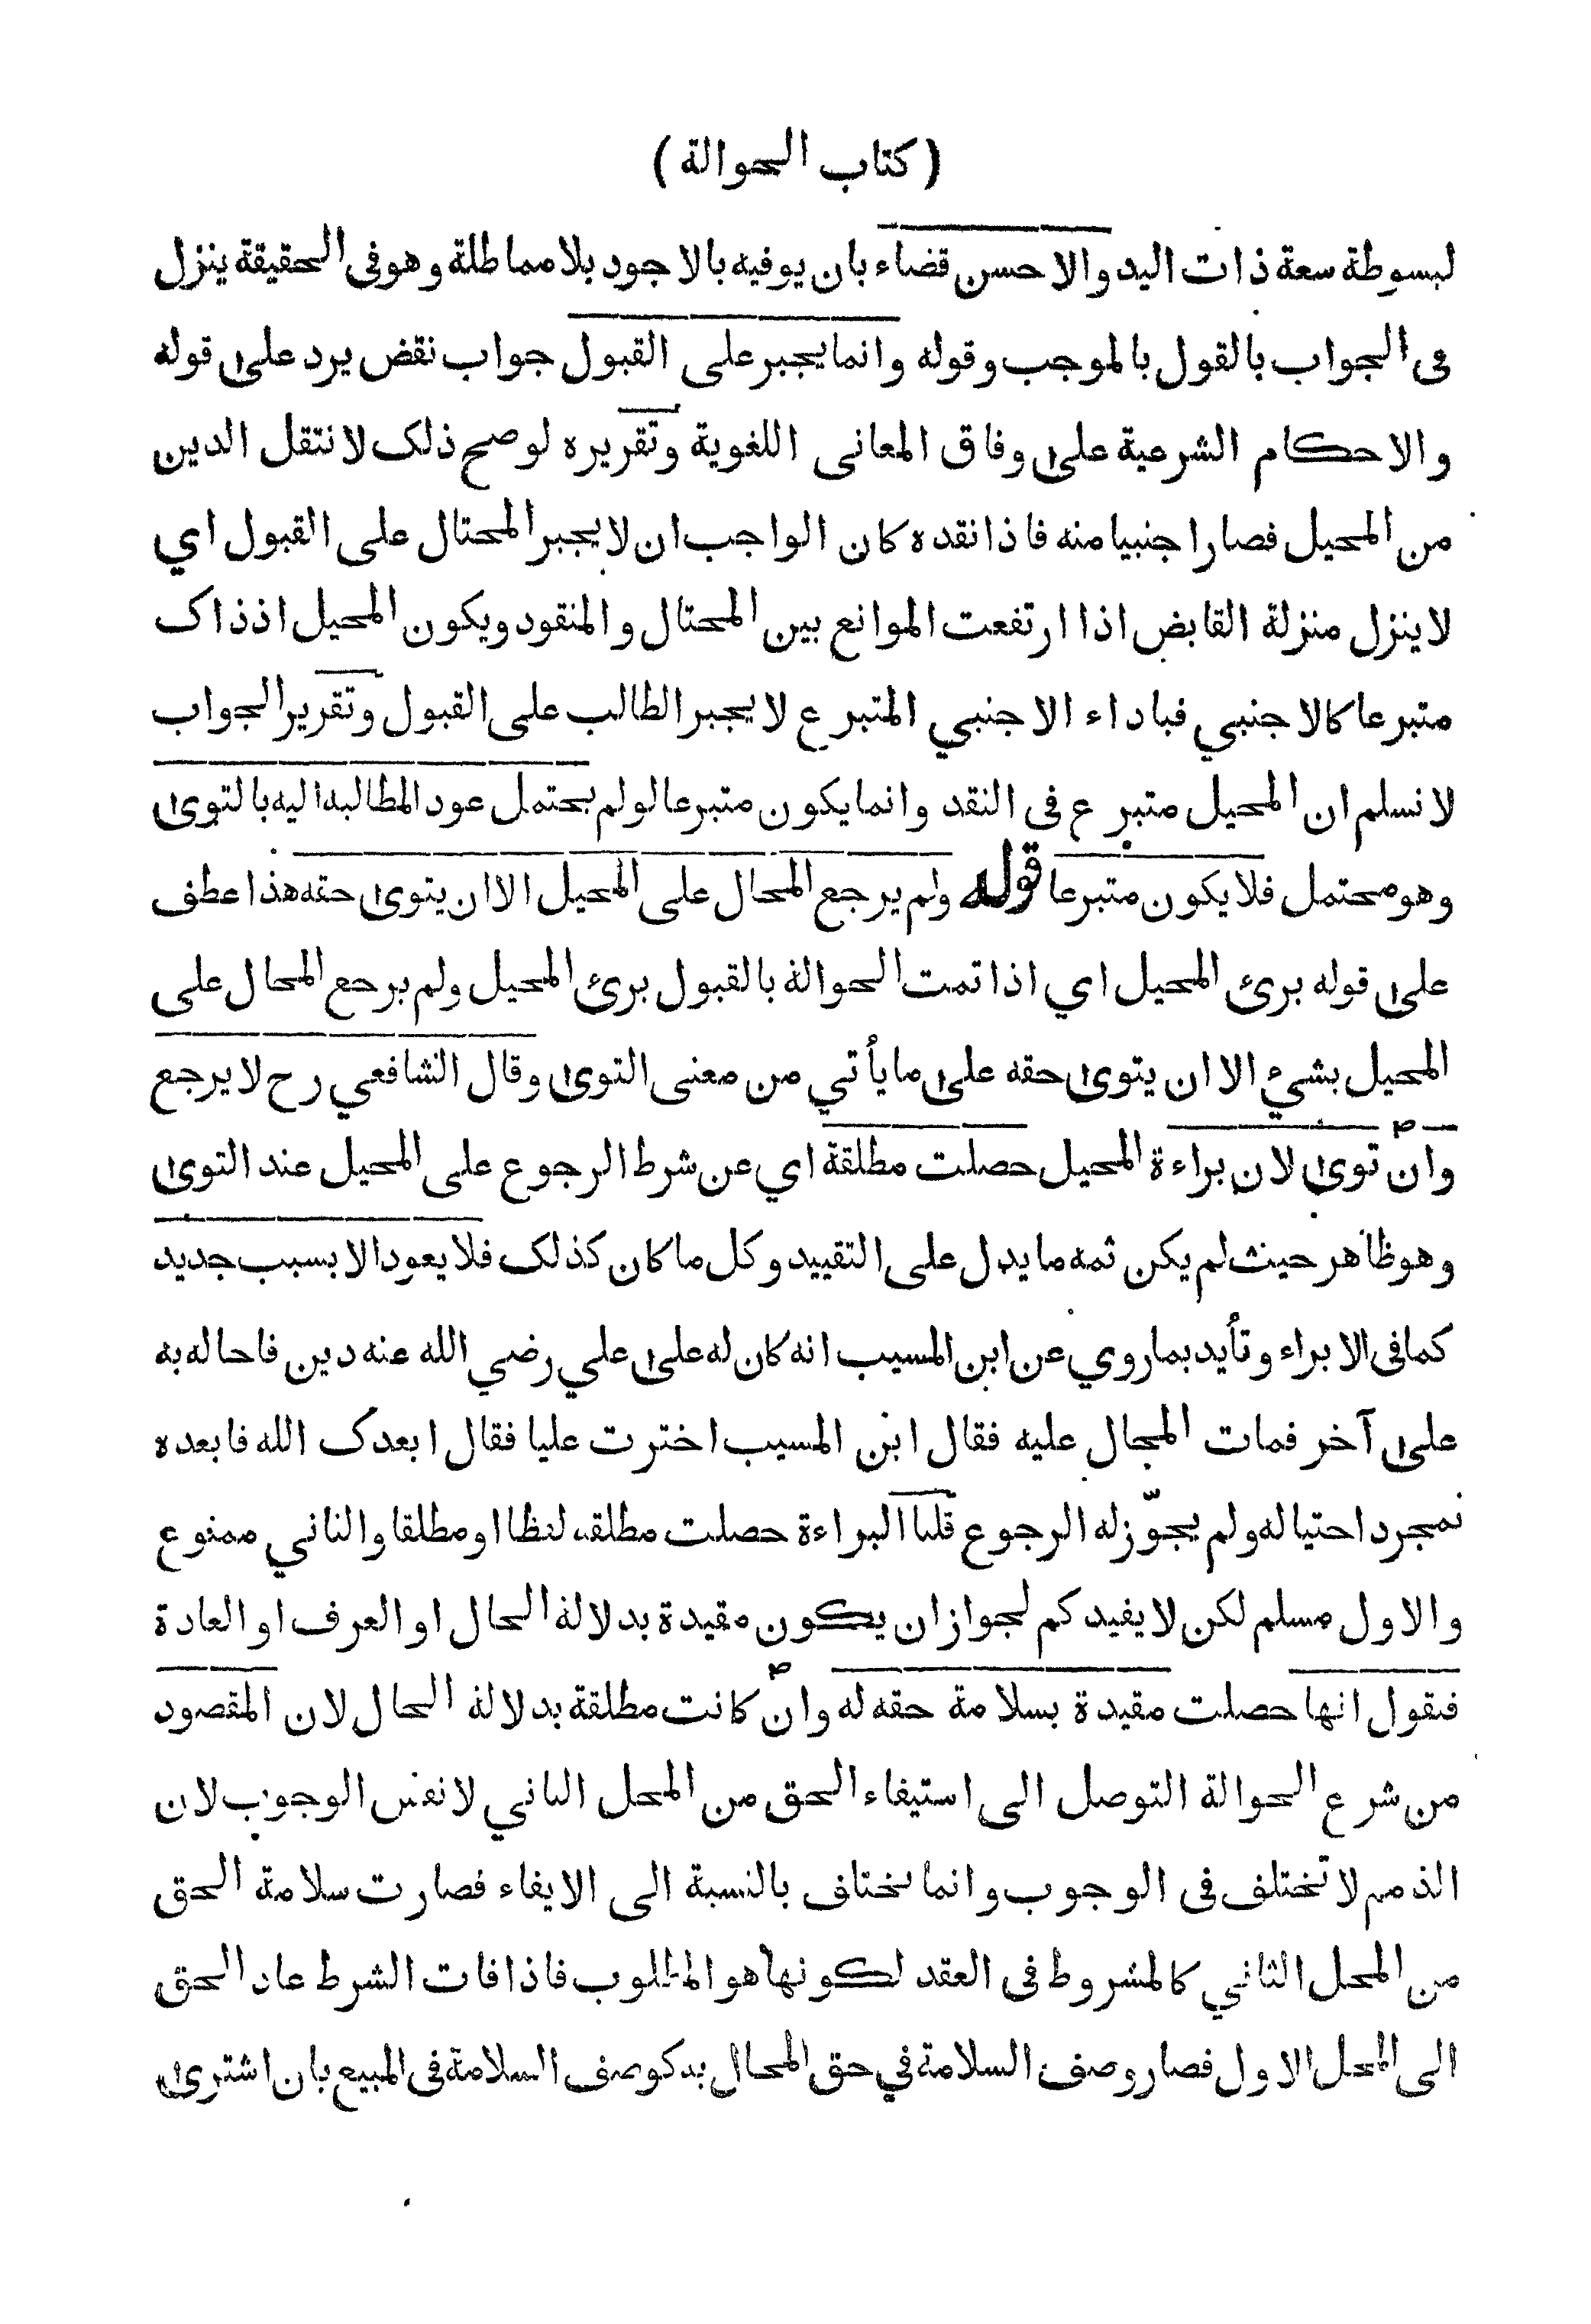 ( كتاب الحوالة )
لبسوطة سعة ذات اليد والاحسن قضاء بان يوفيه بالاجود بلا مماطلة وهو فى الحقيقة ينزل
فى الجواب بالقول بالموجب وقوله وانما يجبر على القبول جواب نقض يرد على قوله
والاحكام الشرعية على وفاق المعانى اللغوية وتقريره لو صح ذلك لانتقل الدين
من المحيل فصار اجنبيا منه فاذا نقده كان الواجب ان لا يجبر المحتال على القبول اي
لا ينزل منزلة القابض اذا ارتفعت الموانع بين المحتال والمنقود ويكون المحيل اذ ذاك
متبرعا كالاجنبي فباداء الاجنبي المتبرع لا يجبر الطالب على القبول وتقرير الجواب
لا نسلم ان المحيل متبرع فى النقد وانما يكون متبرعا لو لم يحتمل عود المطالبه اليه بالتوى
وهو محتمل فلا يكون متبرعا قوله ولم يرجع المحال على المحيل الا ان يتوى حقه هذا عطف
على قوله برئ المحيل اي اذا تمت الحوالة بالقبول برئ المحيل ولم يرجع المحال على
المحيل بشيء الا ان يتوى حقه على ما يأتي من معنى التوى وقال الشافعي رح لا يرجع
وان توى لان براءة المحيل حصلت مطلقة اي عن شرط الرجوع على المحيل عند التوى
وهو ظاهر حيث لم يكن ثمه ما يدل على التقييد وكل ما كان كذلك فلا يعود الا بسبب جديد
كما فى الابراء وتأيد بما روي عن ابن المسيب انه كان له على علي رضي الله عنه دين فاحاله به
على آخر فمات المحال عليه فقال ابن المسيب اخترت عليا فقال ابعدك الله فابعده
بمجرد احتياله ولم يجوّز له الرجوع قلنا البراءة حصلت مطلقه لفظا او مطلقا والثاني ممنوع
والاول مسلم لكن لا يفيدكم لجواز ان يكون مقيدة بدلالة الحال او العرف او العادة
فنقول انها حصلت مقيدة بسلامة حقه له وان كانت مطلقة بدلالة الحال لان المقصود
من شرع الحوالة التوصل الى استيفاء الحق من المحل الثاني لا نفس الوجوب لان
الذمم لا تختلف فى الوجوب وانما تختلف بالنسبة الى الايفاء فصارت سلامة الحق
من المحل الثاني كالمشروط فى العقد لكونها هو المطلوب فاذا فات الشرط عاد الحق
الى المحل الاول فصار وصف السلامة في حق المحال به كوصف السلامة فى المبيع بان اشترى